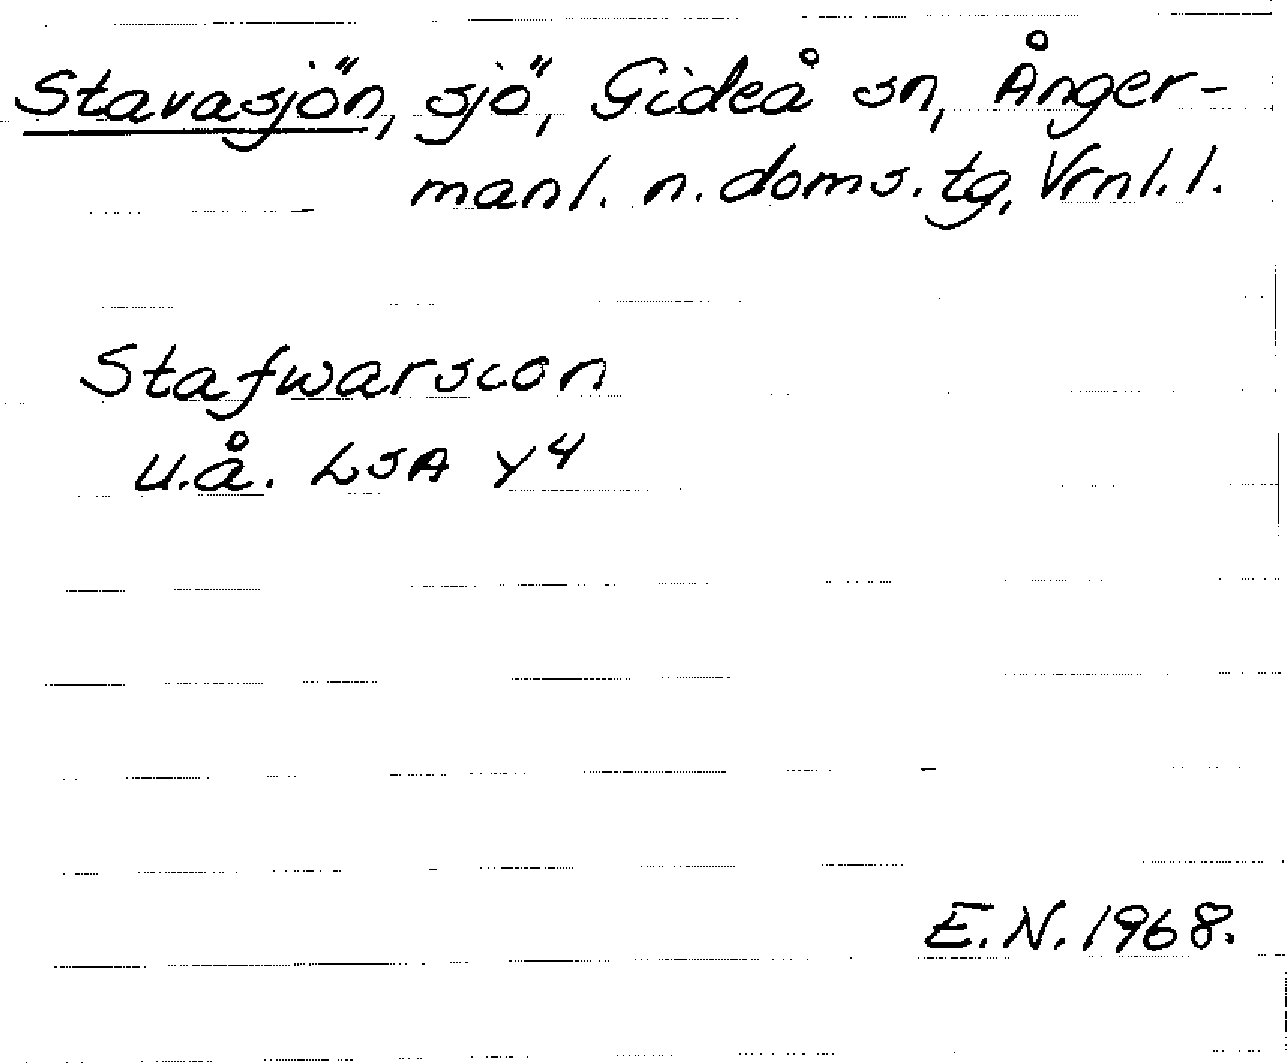 Stavasjön, sjö, Gideå sn, Ånger-
manl. n. doms. tg, Vrnl. l.
Stafwarscon
u.å. LSA Y4
E.N. 1968.